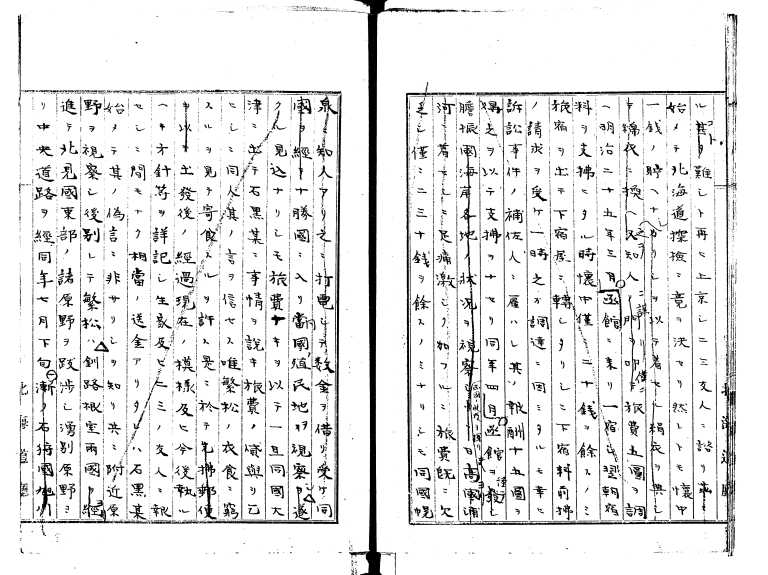 ル其ノ難シト再ヒ上京シ二三友人ニ諮リ
始メテ北海道探檢ニ意ヲ決セリ然レトモ懷中
一錢ノ貯ヘナカリシヲ以テ着セシ絹衣ヲ典シ
綿衣ニ換ヘ知人ニ謀リ旅費五圓ヲ調
ヘ明治二十五年三月函館ニ來リ一宿シ翌朝宿
料ヲ支拂ヒタル時懷中僅ニ二十錢ヲ餘スノミ
旅宿ヲ出テ下宿屋ニ轉シタリシニ下宿料前拂
ノ請求ヲ受ケ一時之カ調達ニ困ミタルモ幸ニ
訴訟事件ノ補佐人ニ雇ハレ其ノ報酬十五圓ヲ
得之ヲ以テ支拂ヲナセリ同年四月函館ヲ發シ
膽振國海岸各地ノ狀況ヲ視察シ日高國浦
河ニ着セシニ足痛激シク加フルニ旅費既ニ欠
乏シ僅ニ二三十錢ヲ餘スノミナリシモ同國幌
泉ニ知人アリ之ニ打電シテ數金ヲ借リ受ケ同
國ヲ經テ十勝國ニ入リ當國殖民地ヲ視察
クル見込ナリシモ旅費ナキヲ以テ一旦同國大
津ニ出テ石黑某ニ事情ヲ說キ旅費ノ貸與ヲ乞
ヒシニ同人其ノ言ヲ信セス唯繁松ノ衣食ニ窮
スルヲ見テ寄食スルヲ許ス是ニ於テ先拂郵便
ヲ以テ出發後ノ經過現在ノ模樣及ヒ今後執ル
ヘキ方針等ヲ詳記シ生家及ヒ二三ノ友人ニ報
セシニ間モナク相當ノ送金アリタレハ石黑某
始メテ其ノ僞言ニ非サリシヲ知リ共ニ附近原
野ヲ視察シ後別レテ繁松ハ釧路根室兩國ヲ經
進テ北見國東部ノ諸原野ヲ跋涉シ湧別原野ヨ
リ中央道路ヲ經同年七月下旬漸ク石狩國旭川
北海道廳